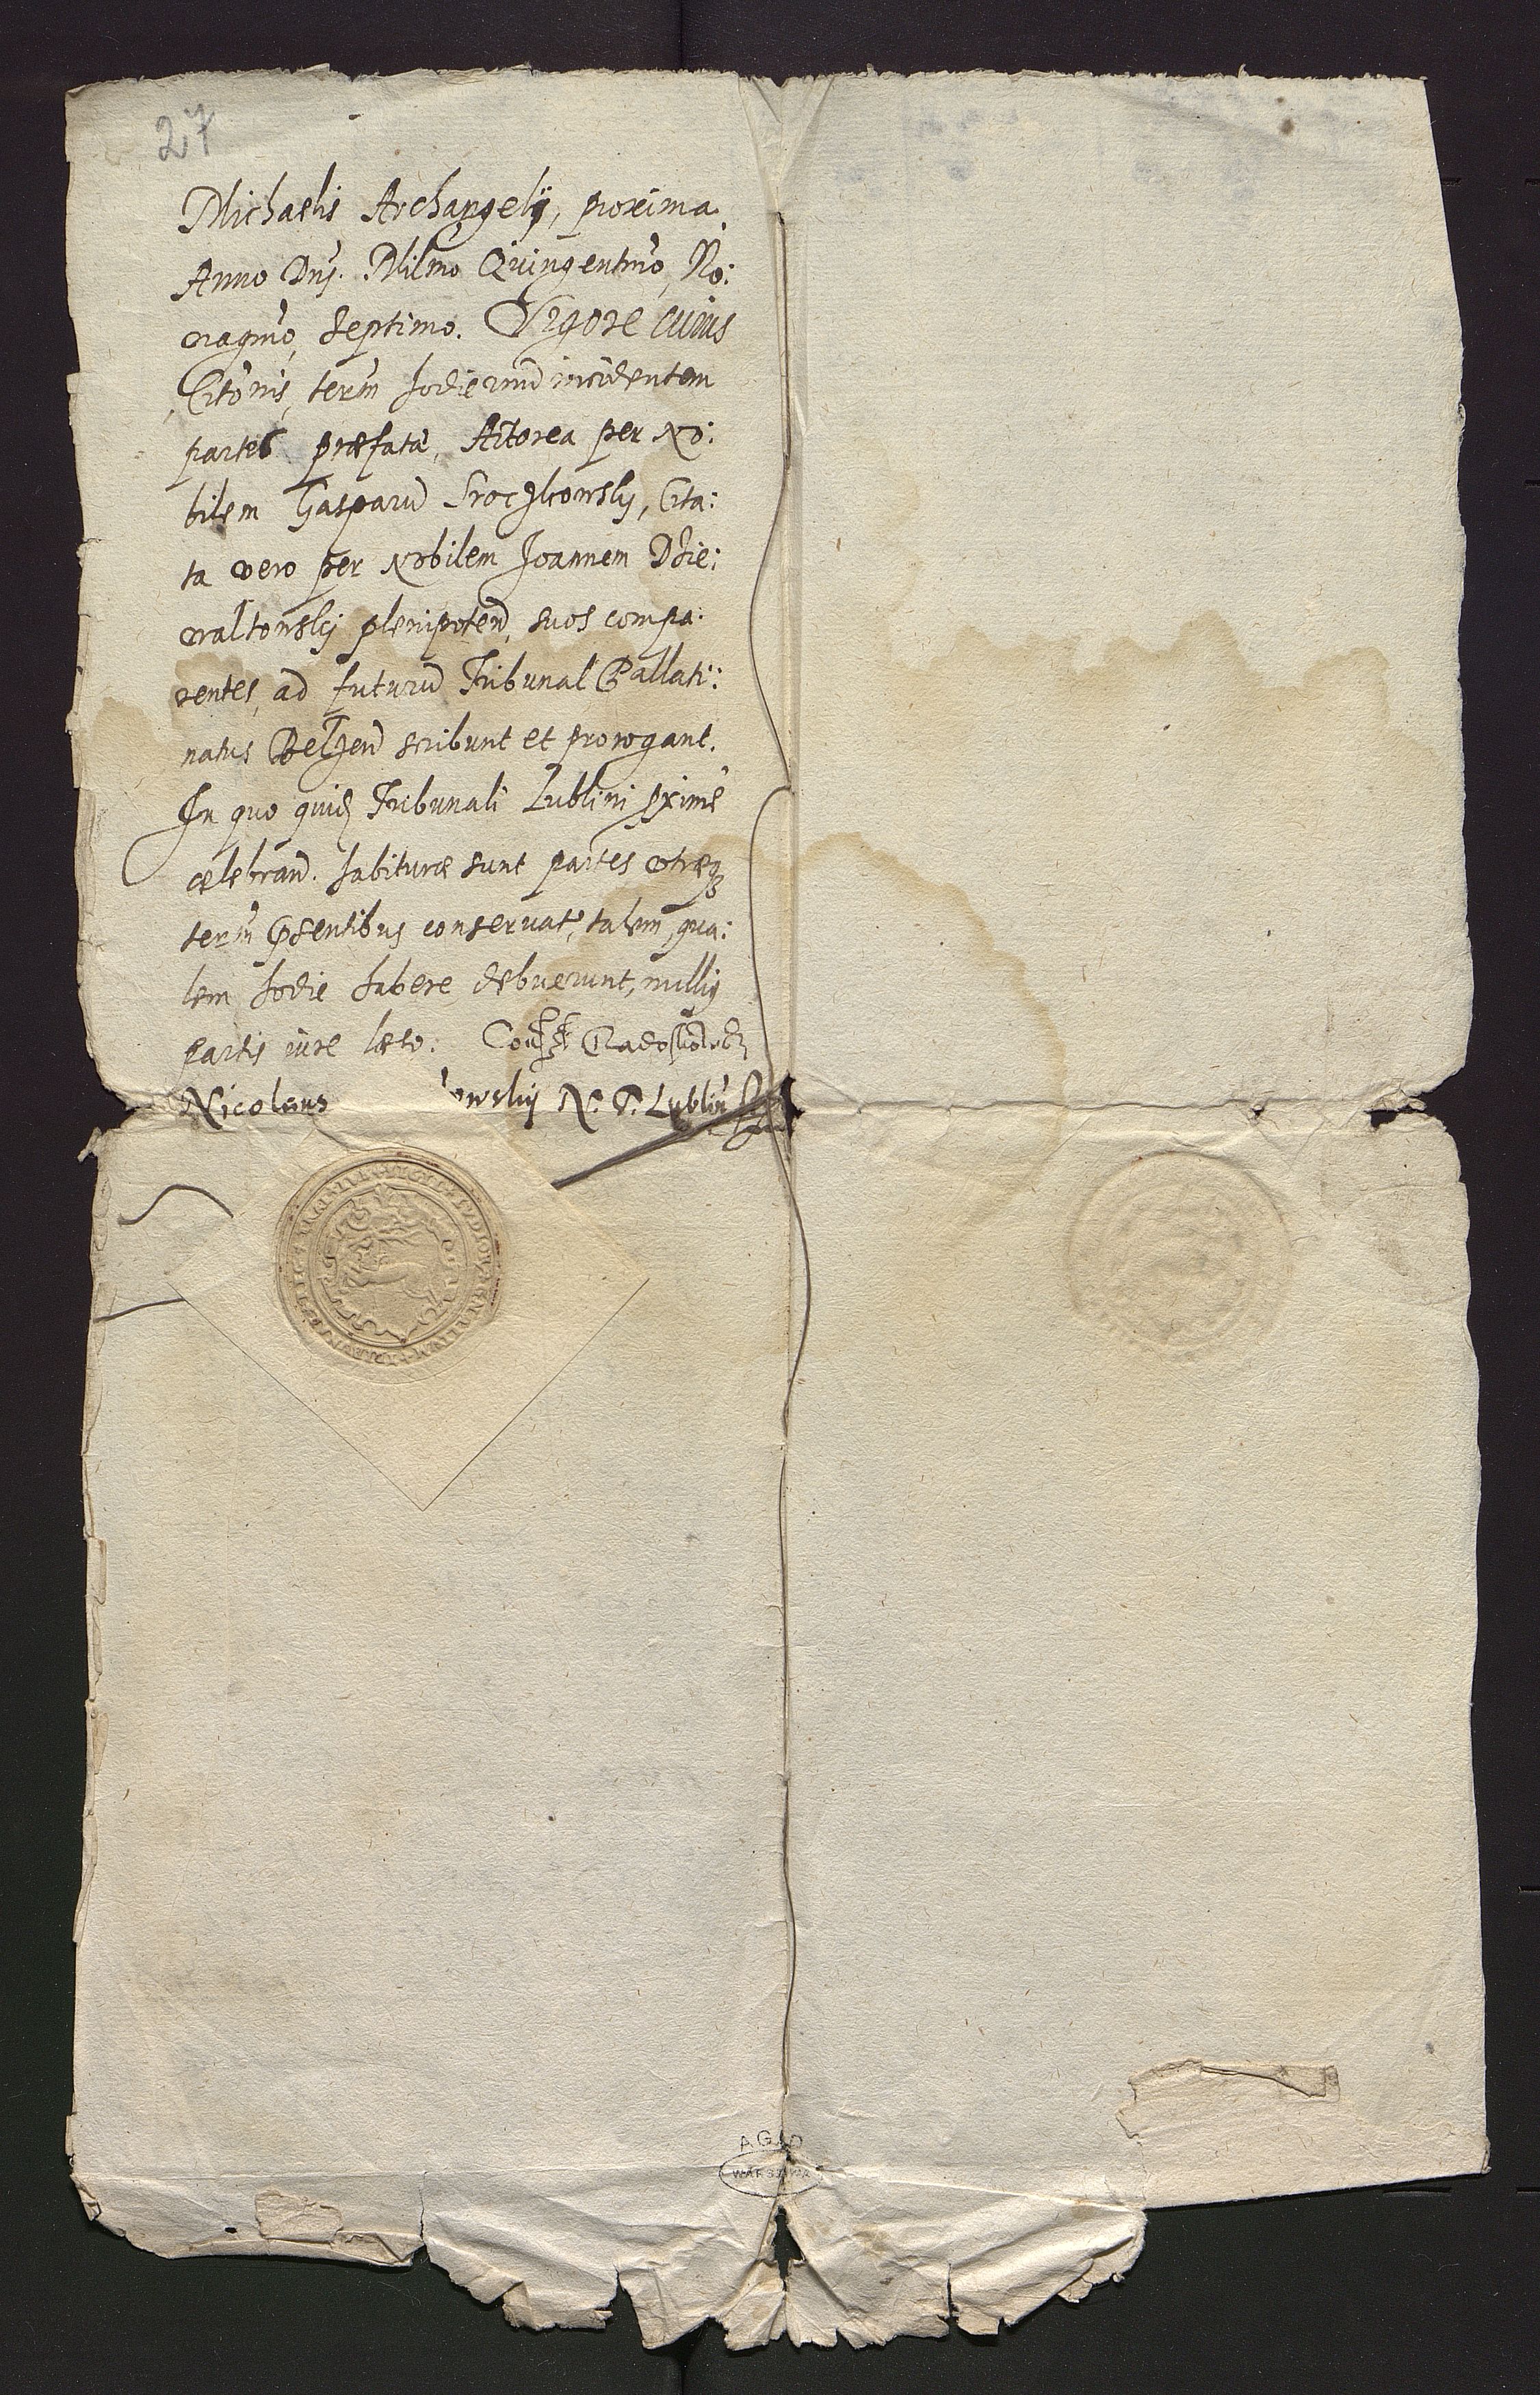 27
Michaelis Archangelÿ, proxima
Anno Dnj. Milmo Quingentmo, No:
nagmo, Septimo. Vigore cuius
Citonis, term hodiernu incidentem
partes præfatæ, Actorea per No:
bilem Gasparu , Cita:
ta vero per Nobilem Joannem Dzie:
waltowskj plenipoten, suos compa:
rentes, ad futuru Tribunal Pallati:
natus Belzen scribunt et prorogant.
In quo quid Tribunali Lublini pxime
celebran. habituræ sunt partes utræq
term psentibus conservat, talem, qua:
lem hodie habere debuerunt, nullÿ
partis iure læso.
Nicolaus owskÿ N. T. Lublin
AGAD
WARSZAWA